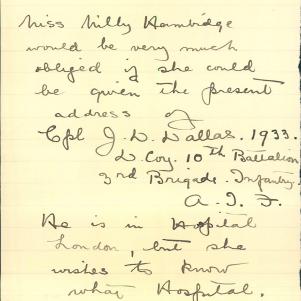 Miss Milly Hambidge
would be very much
obliged if she could
be given the present
address of
Cpl J. D. Dallas. 1933.
D. Coy. 10th Battalion
3rd Brigade. Infantry
A. I. F.
He is in Hospital
London, but she
wishes to know
what Hospital.